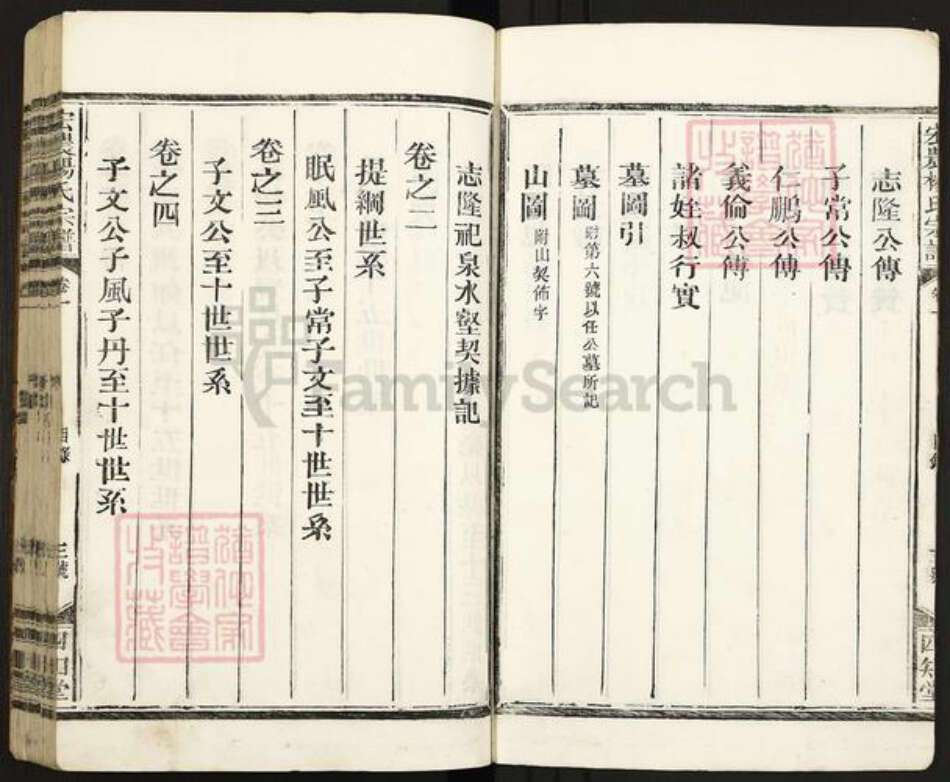 志隆公傳
子常公傳
仁鵬公傳
義倫公傳
諸姪叔行實
墓圖引
墓圖 附第六號以任公墓所記
山圖 附山契佈字
四知堂
志隆祀泉水壑契據記
卷之二
提綱世系
眠風公至子常子文至十世世系
卷之三
子文公至十世世系
卷之四
子文公子風子丹至十世世系
卷一
目錄
三號
FamilySearch